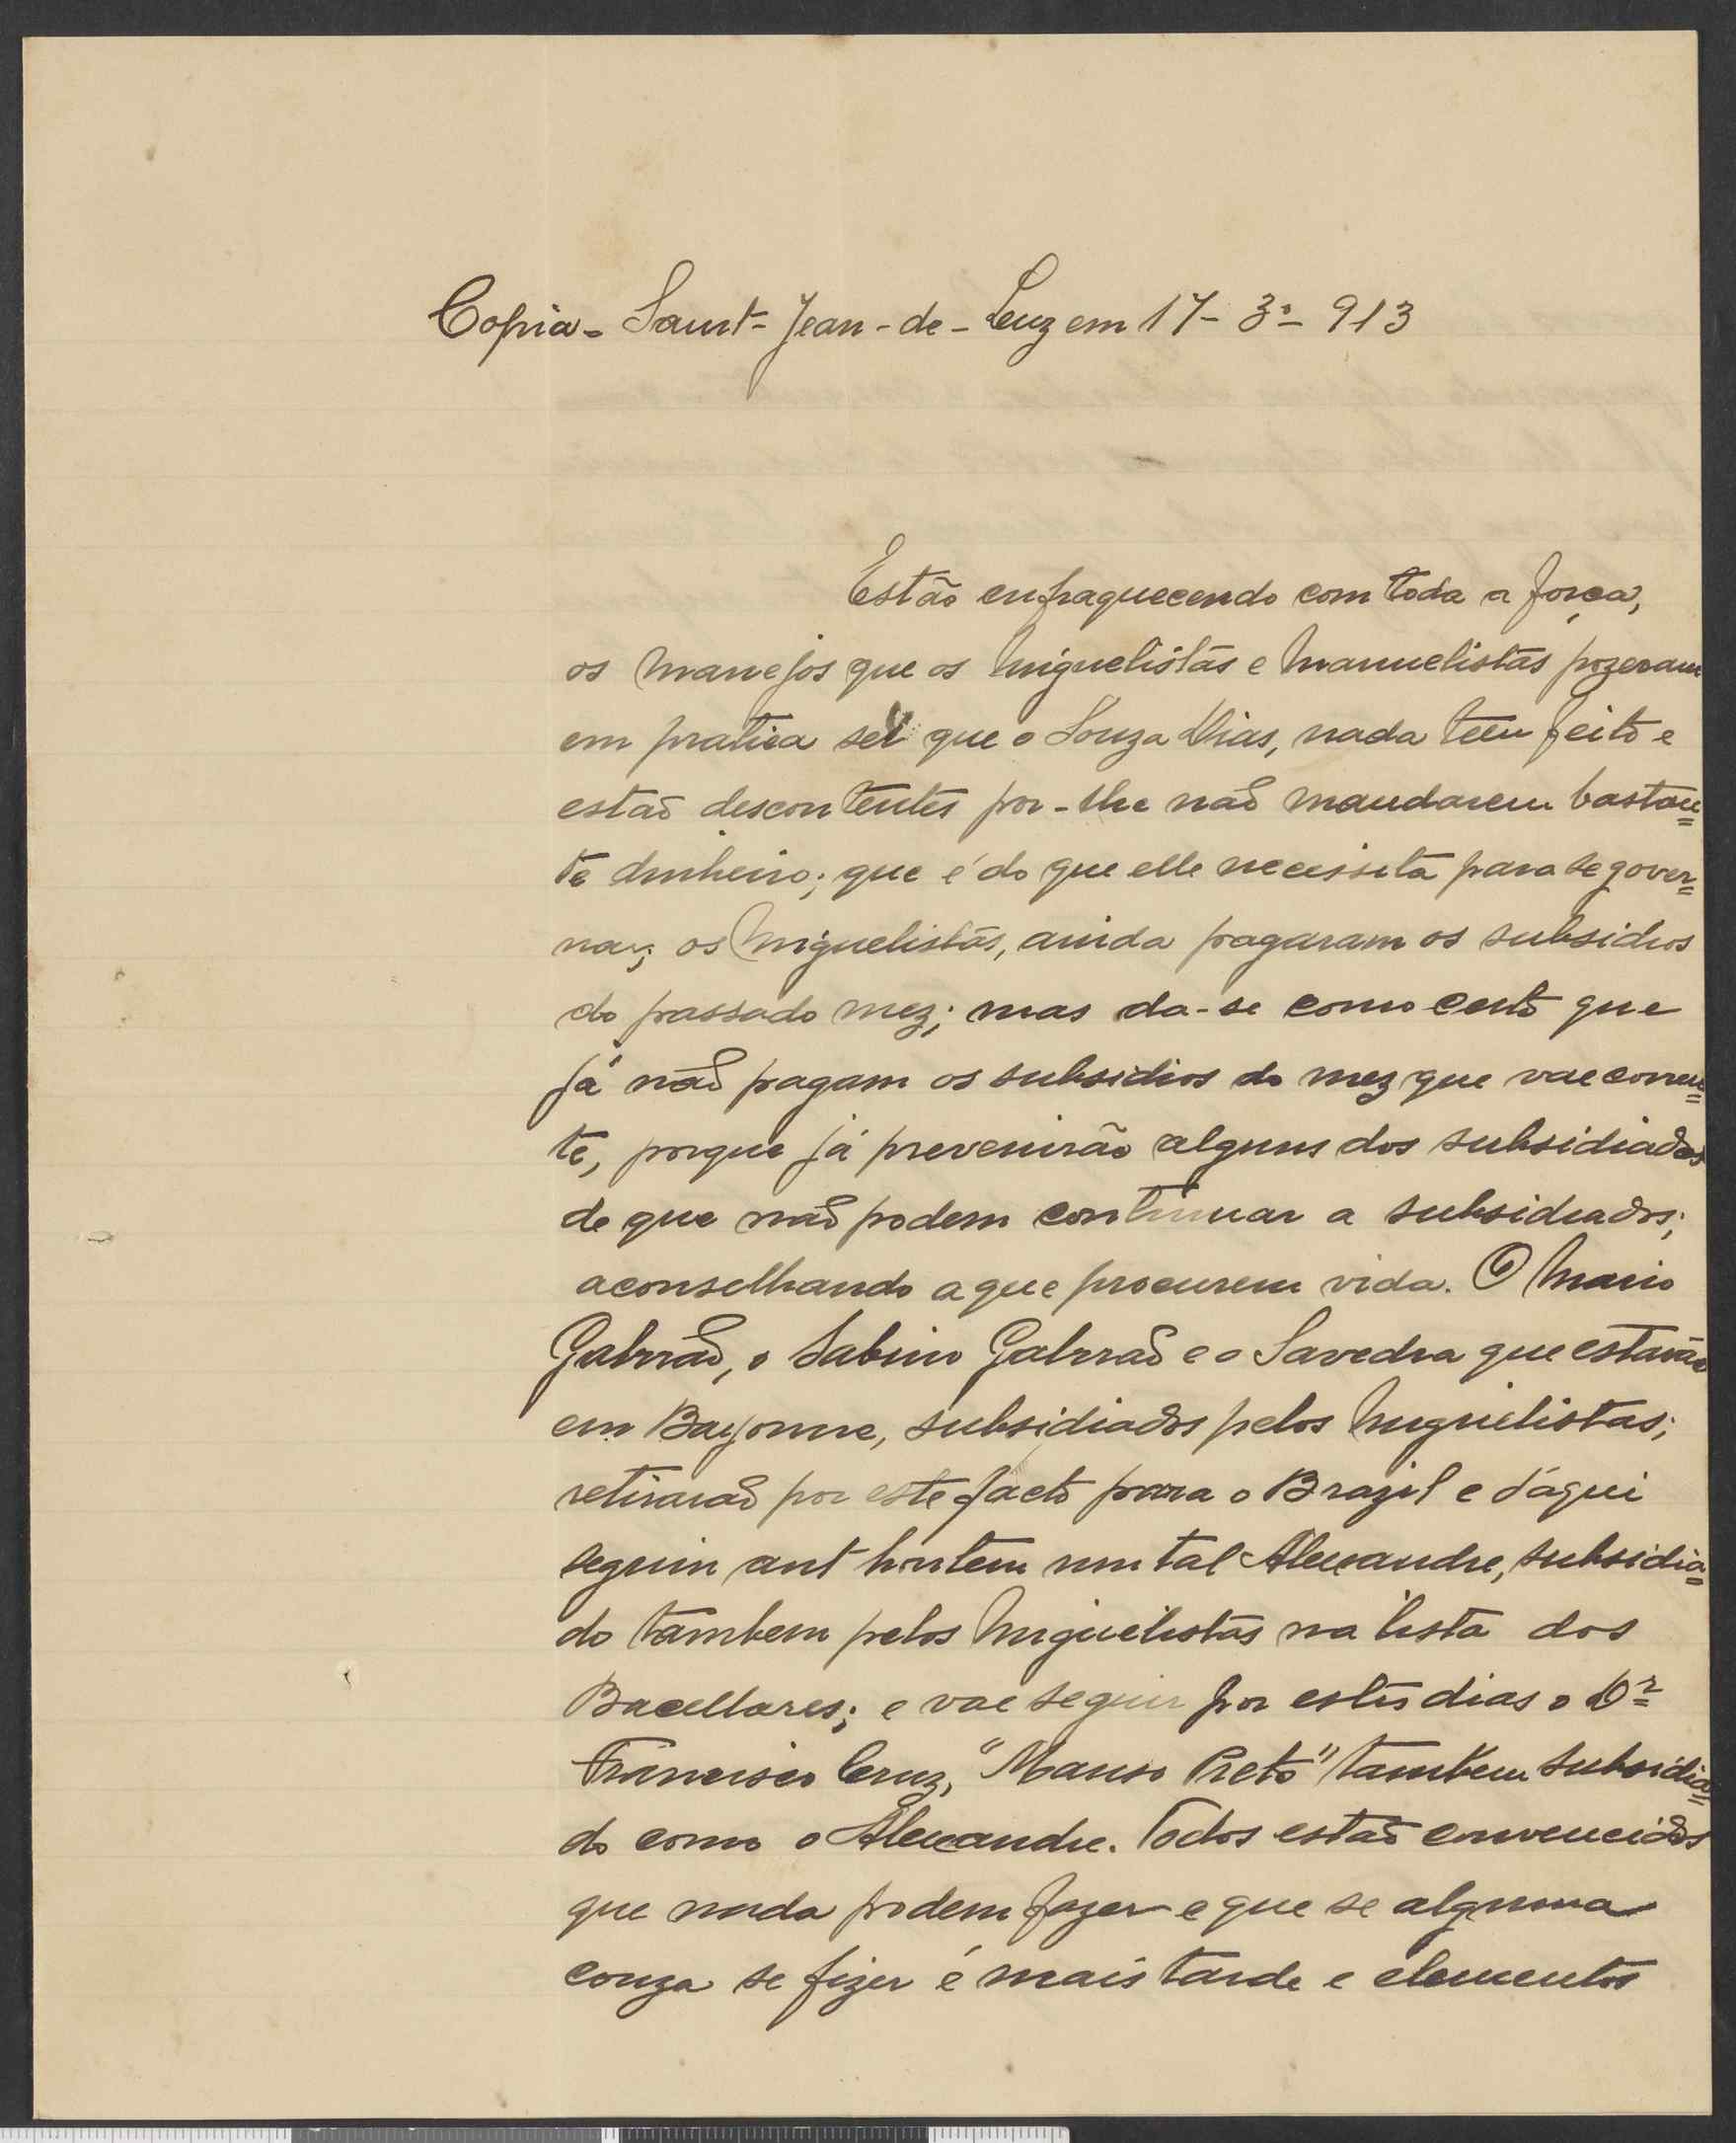 Copia - Saint-Jean-de-Luz em 17-3º-913
Estão enfraquecendo com toda a força,
os manejos que os Miguelistas e Manuelistas pozeram
em pratica sei que o Souza Dias, nada tem feito e
estaõ descontentes por-lhe naõ mandarem bastan=
te dinheiro; que é do que elle necessita para se gover=
nar; os Miguelistas, ainda pagaram os subsidios
do passado mez; mas da-se como certo que
já naõ pagam os subsidios do mez que vae corren=
te, porque já prevenirão alguns dos subsidiados
de que naõ podem continuar a subsidiados;
aconselhando a que procurem vida. O Mario
Galrraõ, o Sabino Galrraõ e o Savedra que estavão
em Bayonne, subsidiados pelos Miguelistas;
retiraraõ por este facto para o Brazil e d'aqui
seguiu ant hontem um tal Alexandre, subsidia=
do tambem pelos Miguelistas na lista dos
Bacellares; e vae seguir por estes dias o Dr
Francisco Cruz, "Manso Preto" tambem subsidia=
do como o Alexandre. Todos estaõ convencidos
que nada podem fazer e que se alguma
couza se fizer é mais tarde e elementos